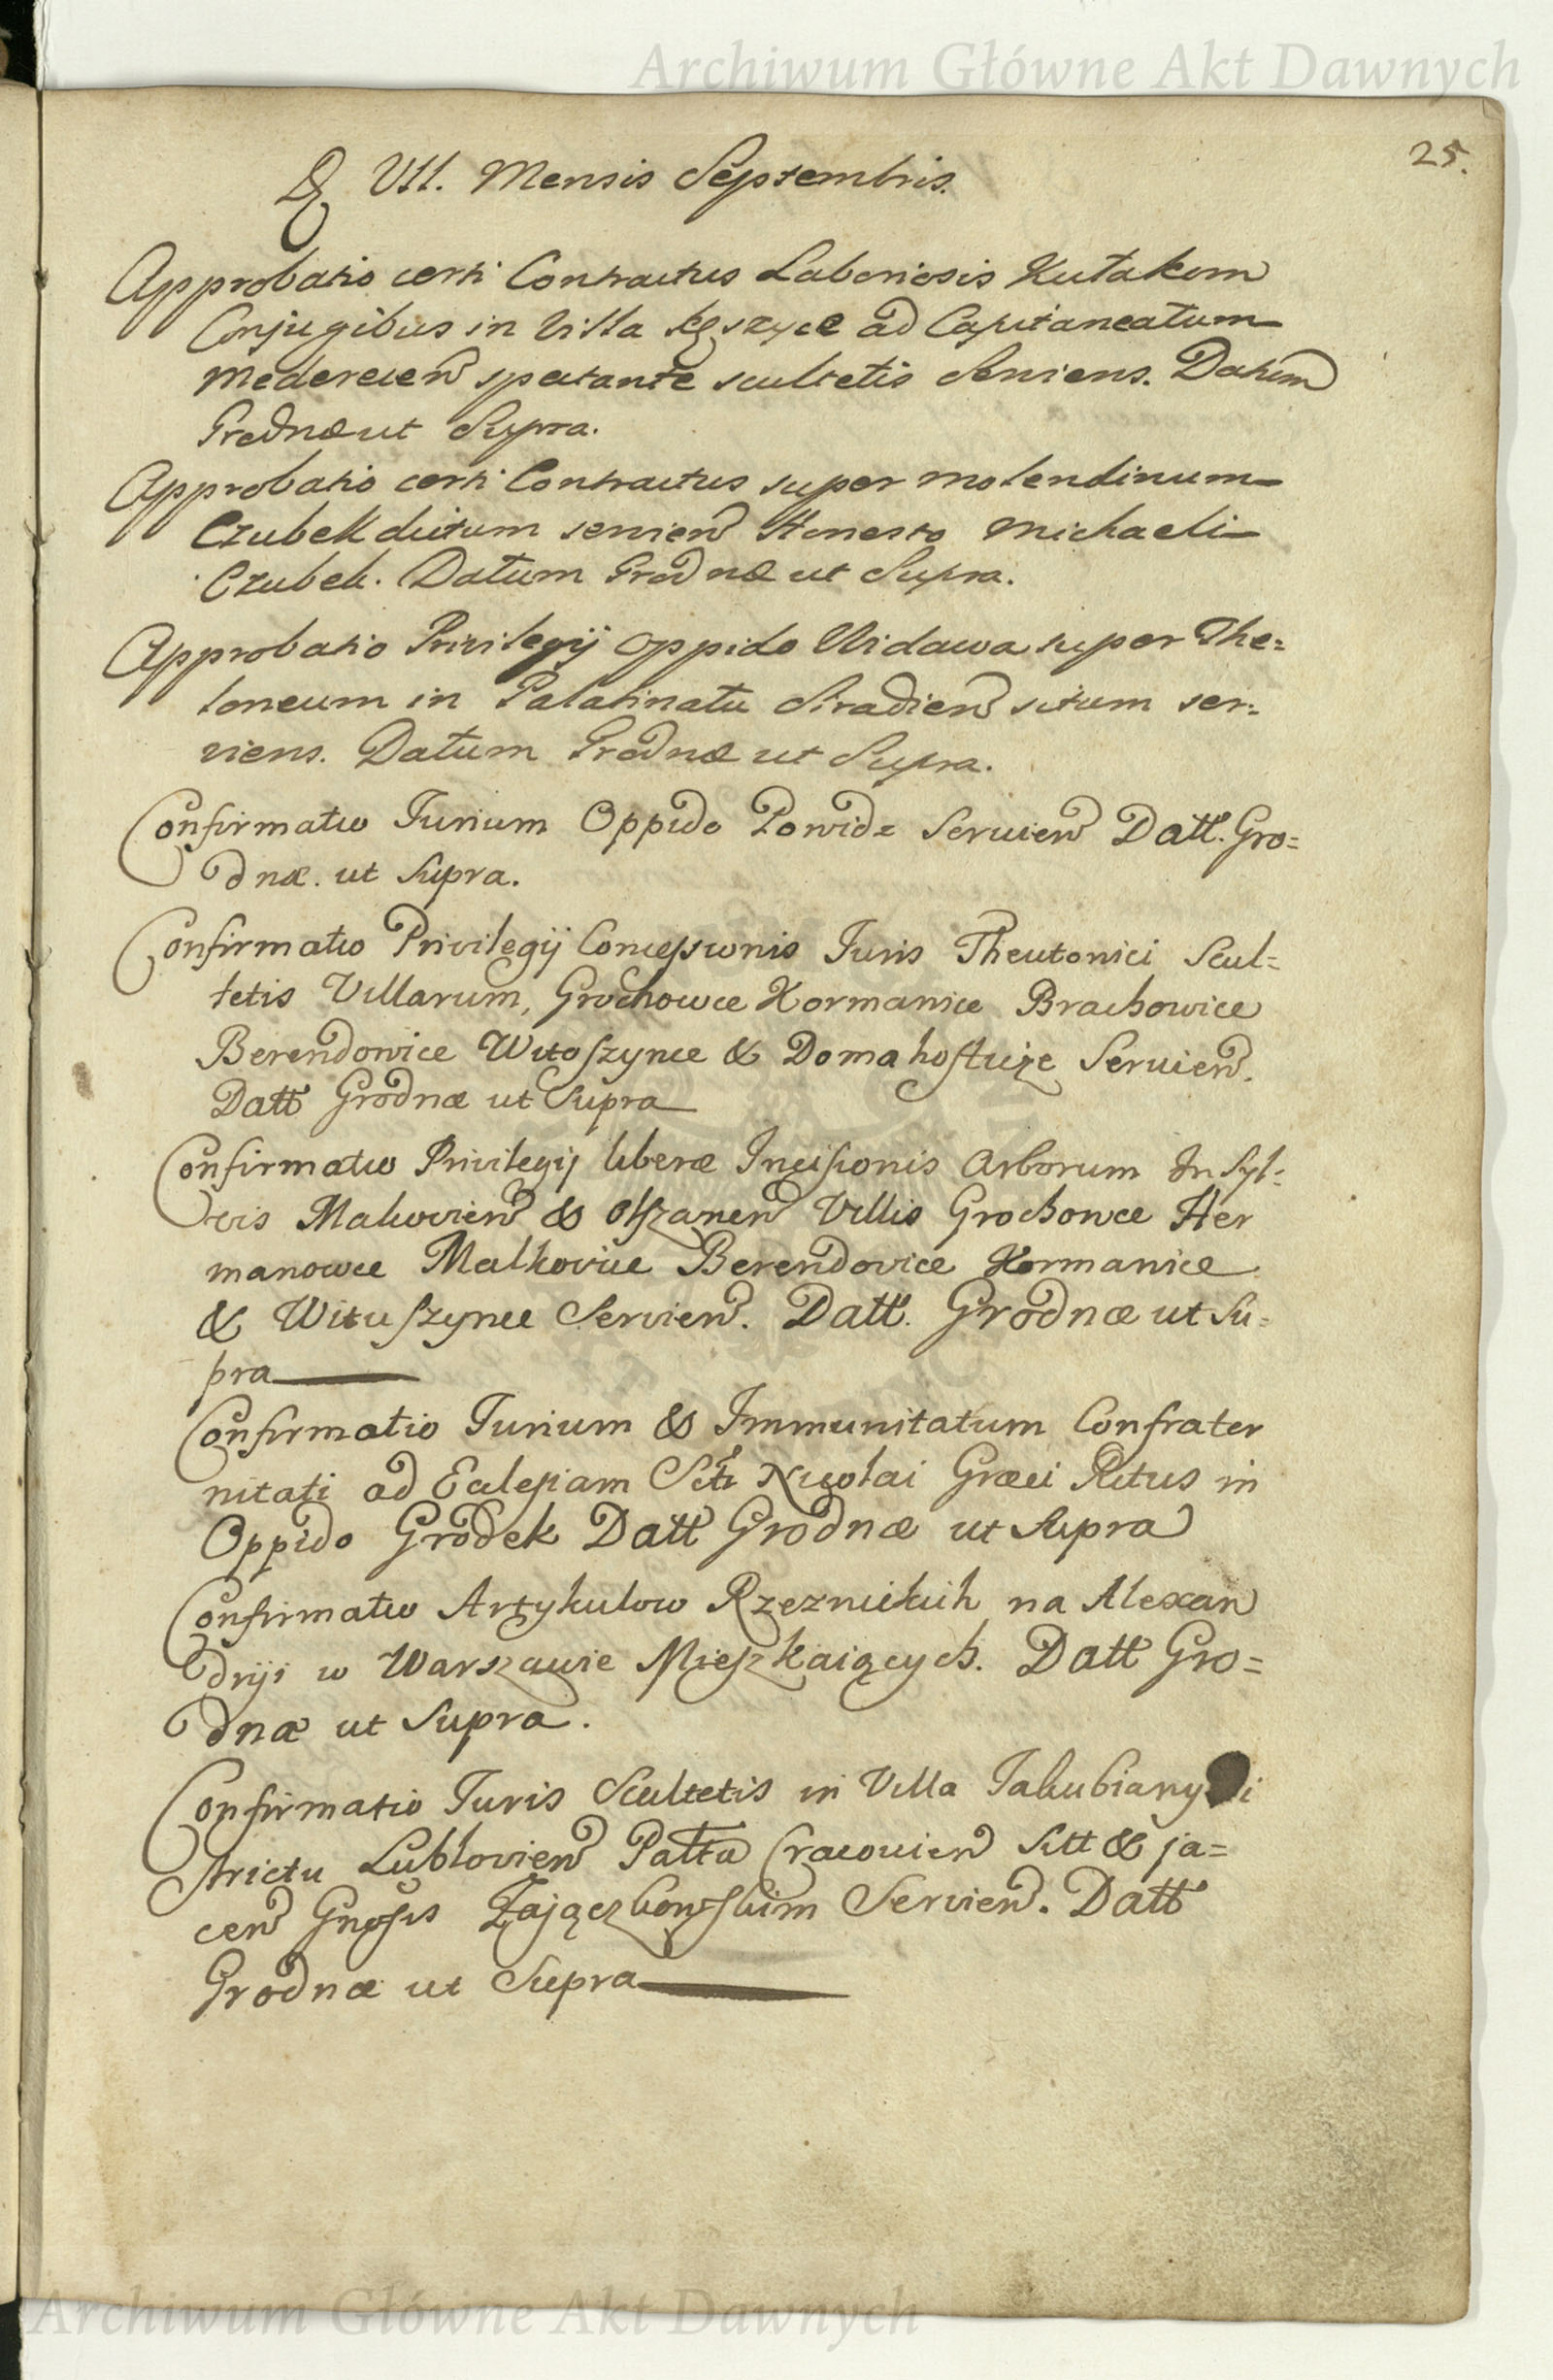 Archiwum Główne Akt Dawnych
25.
D. VII. Mensis Septembris.
Approbatio certi Contractus Laboriosis Kutakom
Conjugibus in Villa Kęszyce ad Capitaneatum
Mederecen spectante scultetis serviens. Datum
Grodnæ ut Supra.
Approbatio certi Contractus super molendinum
Czubek dictum servien Honesto Michaeli
Czubek. Datum Grodnæ ut Supra.
Approbatio Privilegij oppido Widawa super The=
loneum in Palatinatu Siradien situm ser=
viens. Datum Grodnæ ut Supra.
Confirmatio Jurium Oppido Powidz Servien Datt. Gro=
dnæ. ut Supra.
Confirmatio Privilegij Concessionis Juris Theutonici Scul=
tetis Villarum, Grochowce Kormanice Brachowice
Berendowice Witoszynce & Domahostuze Servien.
Datt Grodnæ ut Supra
Confirmatio Privilegij liberæ Incisionis Arborum In Syl=
vis Malhovien & Olszanen Villis Grochowce Her
manowce Malhovice Berendovice Kormanice
& Wituszynce Servien. Datt. Grodnæ ut Su=
pra
Confirmatio Jurium & Immunitatum Confrater
nitati ad Eclesiam Scti Nicolai Græci Ritus in
Oppido Grodek Datt Grodnæ ut Supra
Confirmatio Artykulow Rzeznickich na Alexan
dryi w Warszawie Mieszkaiących. Datt Gro=
dnæ ut Supra.
Confirmatio Juris Scultetis in Villa Jakubiany Di
strictu Lublovien Pattu Cracovien Sitt & ja=
cen Gnosis Zajączkowskim Servien. Datt
Grodnæ ut Supra
Archiwum Główne Akt Dawnych